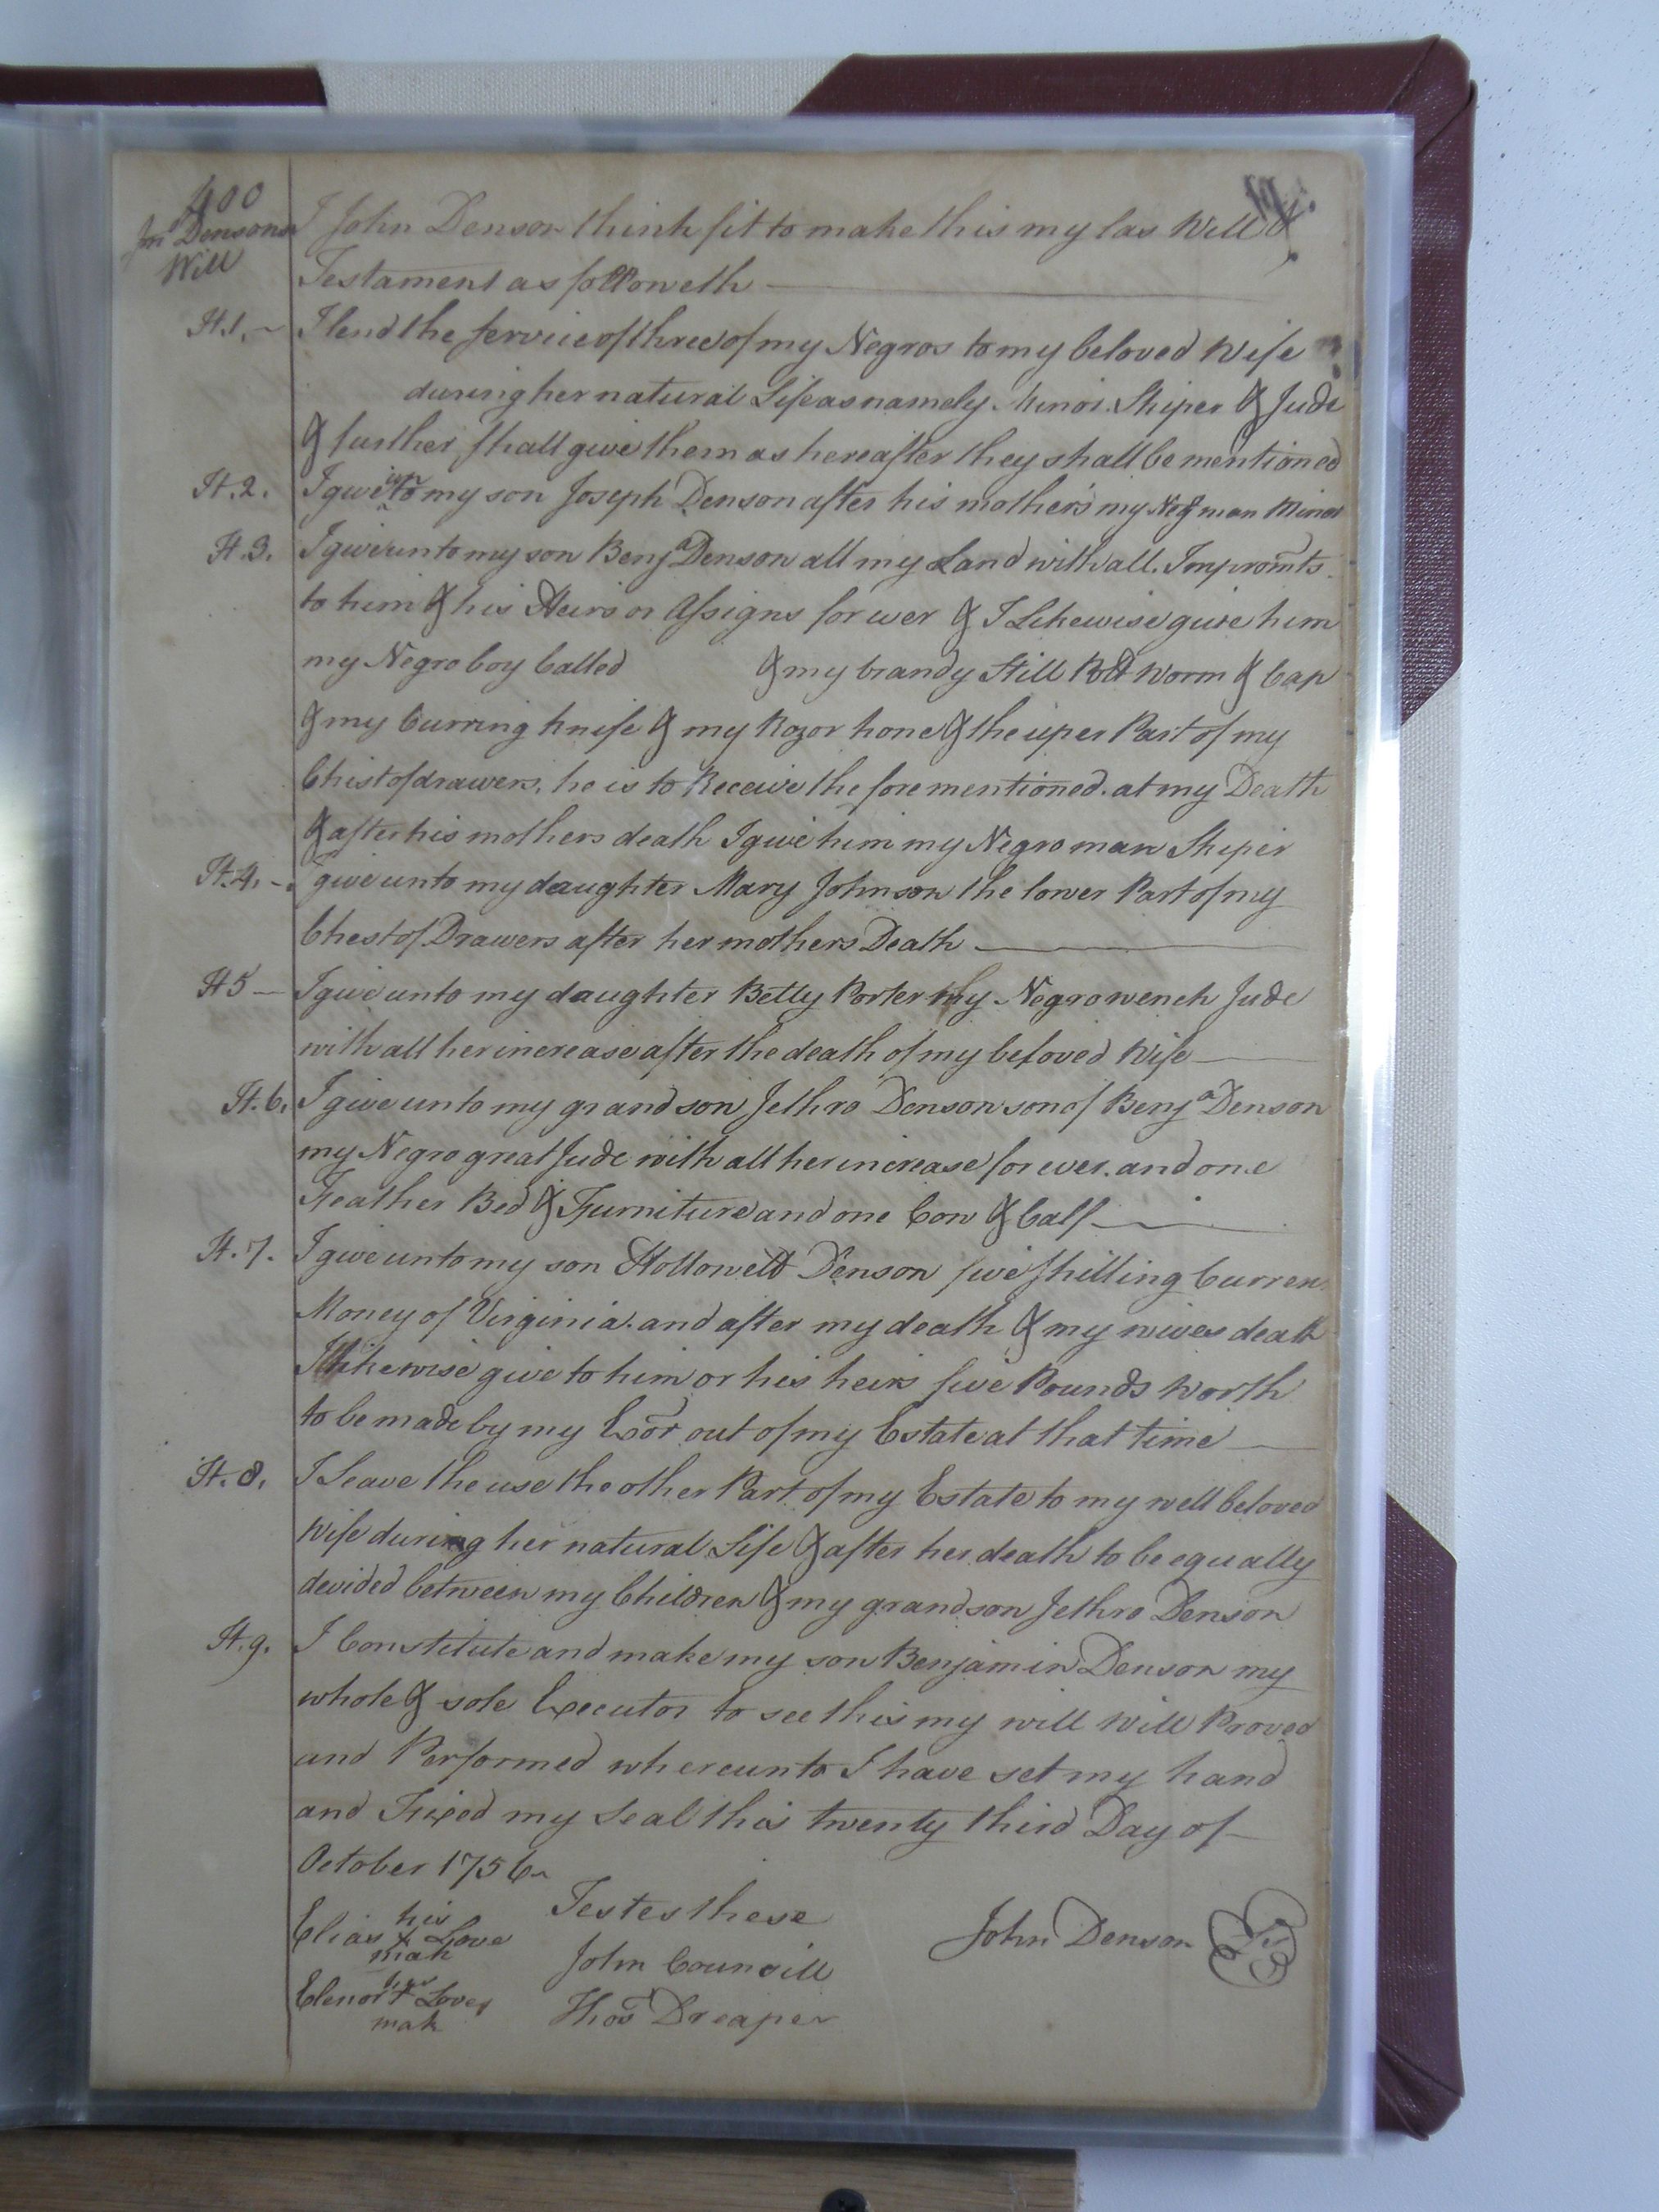 400
Jnº Densons
Will
I John Denson think fit to make this my las Will &
Testament as followeth
It. 1. I lend the service of three of my Negros to my beloved Wife
during her natural Life as namely Minor. Skiper & Jude
& further shall give them as hereafter they shall be mentioned
It. 2. I give unto my son Joseph Denson after his mother's my Negº man Minor
It. 3. I give unto my son Benjª Denson all my Land with all Impromts.
to him & his Heirs or Assigns for ever & I Likewise give him
my Negro boy Called & my brandy Still Pott Worm & Cap
& my Curring knife & my Rozor hone & the uper Part of my
Chist of drawers, he is to Receive the fore mentioned at my Death
& after his mothers death I give him my Negro man Skiper
It. 4. I give unto my daughter Mary Johnson the lower Part of my
Chest of Drawers after her mothers Death
It 5 I give unto my daughter Betty Porter my Negro wench Jude
with all her increase after the death of my beloved Wife
It. 6. I give unto my grand son Jethro Denson son of Benjª Denson
my Negro great Jude with all her increase for ever. and one
Feather Bed & Furniture and one Cow & Calf
It. 7. I give unto my son Hollowell Denson five shilling Curren
Money of Virginia. and after my death & my wives death
I likewise give to him or his heirs five Pounds Worth
to be made by my Exor out of my Estate at that time
It. 8. I Leave the use the other Part of my Estate to my well beloved
Wife during her natural Life & after her death to be equally
devided between my Children & my grandson Jethro Denson
It. 9. I Constitute and make my son Benjamin Denson my
whole & sole Executor to see this my will Will Proved
and Performed whereunto I have set my hand
and Fixed my Seal this twenty third Day of
October 1756
Testes these
his
Elias + Love
mak
John Councill
John Denson
her
Elenor + Love
mak
Thos Dreaper